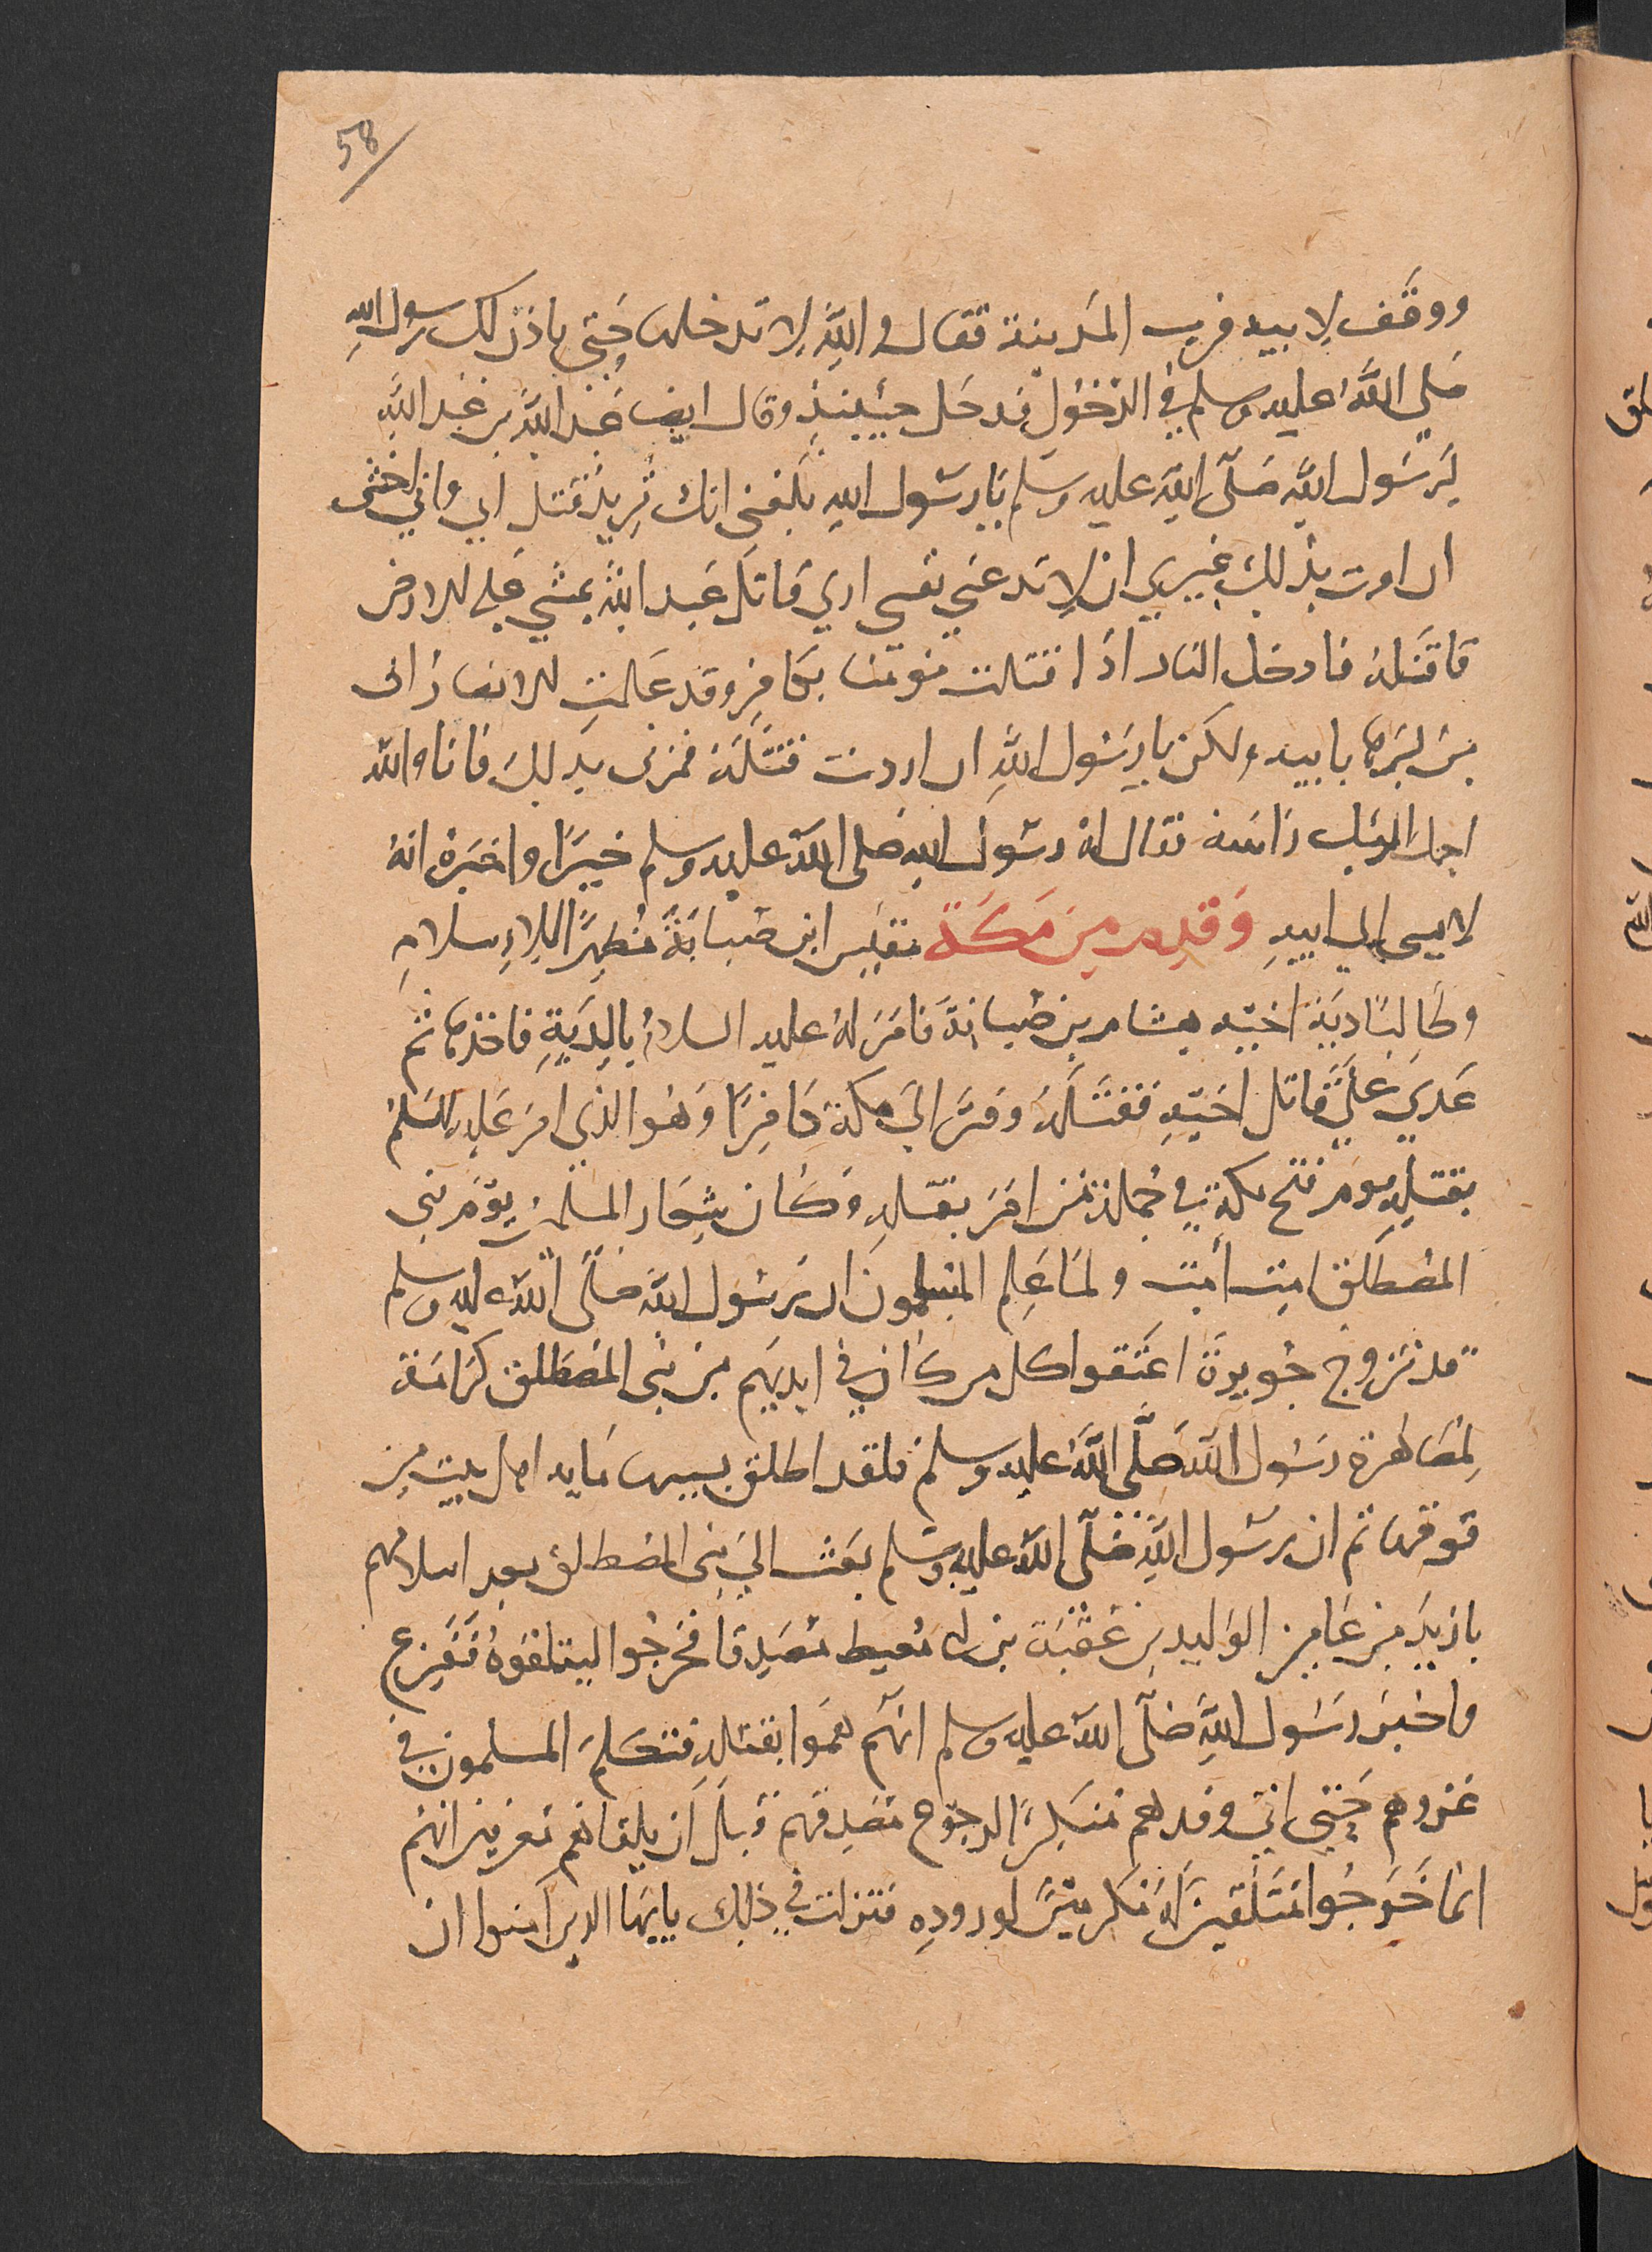 58
ووقف لابيه قرب المدينة فقال والله لا تدخلها حتى ياذن لك رسول الله
صلى الله عليه وسلم في الدخول فدخل حينيذ وقال ايضا عبد الله بن عبد الله
لرسول الله صلى الله عليه وسلم يا رسول الله بلغني انك تريد قتل ابي واني اخشى
ان امرت بذلك غيري ان لا تدعني نفسي اري قاتل عبد الله يمشي على الارض
فاقتله فادخل النار اذا قتلت مومنا بكافر وقد علمت الانصار اني
من ابرها بابيه ولكن يا رسول الله ان اردت قتله فمرني بذلك فانا والله
احمل اليك راسه فقال له رسول الله صلى الله عليه وسلم خيرا واخبره انه
لا يسي الى ابيه وقدم من مكة مقيس ابن ضبابة مظهرا للاسلام
وطالبا دية اخيه هشام بن ضبابة فامر له عليه السلام بالدية فاخذها ثم
عدي على قاتل اخيه فقتله وفر الى مكة كافرا وهو الذي امر عليه السلم
بقتله يوم فتح مكة في جملة من امر بقتله وكان شعار المسلمين يوم بني
المصطلق امت امت ولما علم المسلمون ان رسول الله صلى الله عليه وسلم
قد تزوج جويرة اعتقوا كل من كان في ايديهم من بني المصطلق كرامة
لمصاهرة رسول الله صلى الله عليه وسلم فلقد اطلق بسببها مايه اهل بيت من
قومها ثم ان رسول الله صلى الله عليه وسلم بعث الى بني المصطلق بعد اسلامهم
بازيد من عامين الوليد بن عقبة بن ابي معيط مصدقا فخرجوا ليتلقوه ففزع
واخبر رسول الله صلى الله عليه وسلم انهم هموا بقتله فتكلم المسلمون في
غزوهم حتى اتي وفدهم منكرا لرجوع مصدقهم قبل ان يلقاهم معرفين انهم
انما خرجوا متلقين له مكرمين لوروده فنزلت في ذلك يايها الذين آمنوا ان